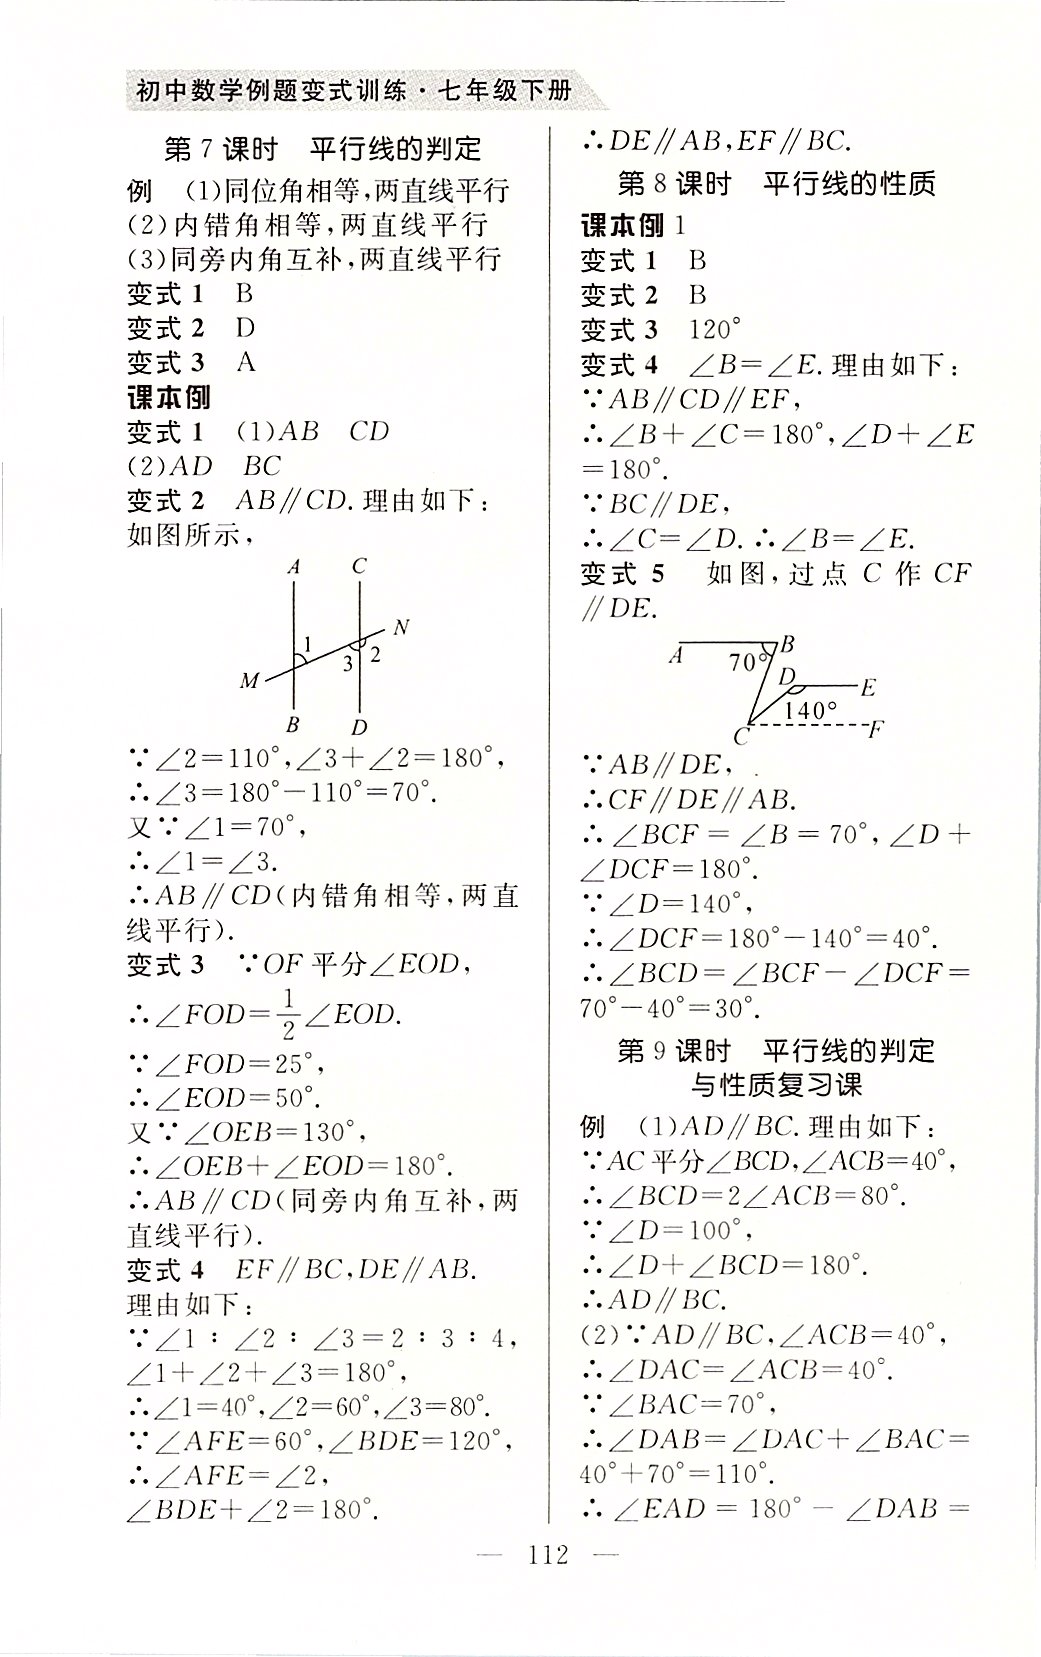 初中数学例题变式训练·七年级下册
第 7 课时　平行线的判定
例　(1)同位角相等,两直线平行
(2)内错角相等,两直线平行
(3)同旁内角互补,两直线平行
变式 1　B
变式 2　D
变式 3　A
课本例
变式 1　(1)AB　CD
(2)AD　BC
变式 2　AB∥CD. 理由如下:
如图所示,
A　C
1　N
3　2
M
B　D
∵∠2=110°,∠3+∠2=180°,
∴∠3=180°-110°=70°.
又∵∠1=70°,
∴∠1=∠3.
∴AB∥CD(内错角相等,两直
线平行).
变式 3　∵OF 平分∠EOD,
∴∠FOD=1/2∠EOD.
∵∠FOD=25°,
∴∠EOD=50°.
又∵∠OEB=130°,
∴∠OEB+∠EOD=180°.
∴AB∥CD(同旁内角互补,两
直线平行).
变式 4　EF∥BC,DE∥AB.
理由如下:
∵∠1∶∠2∶∠3=2∶3∶4,
∠1+∠2+∠3=180°,
∴∠1=40°,∠2=60°,∠3=80°.
∵∠AFE=60°,∠BDE=120°,
∴∠AFE=∠2,
∠BDE+∠2=180°.
∴DE∥AB,EF∥BC.
第 8 课时　平行线的性质
课本例 1
变式 1　B
变式 2　B
变式 3　120°
变式 4　∠B=∠E. 理由如下:
∵AB∥CD∥EF,
∴∠B+∠C=180°,∠D+∠E
=180°.
∵BC∥DE,
∴∠C=∠D. ∴∠B=∠E.
变式 5　如图,过点 C 作 CF
∥DE.
A　70°　B
D　E
140°
C　F
∵AB∥DE,
∴CF∥DE∥AB.
∴∠BCF=∠B=70°,∠D+
∠DCF=180°.
∵∠D=140°,
∴∠DCF=180°-140°=40°.
∴∠BCD=∠BCF-∠DCF=
70°-40°=30°.
第 9 课时　平行线的判定
与性质复习课
例　(1)AD∥BC. 理由如下:
∵AC 平分∠BCD,∠ACB=40°,
∴∠BCD=2∠ACB=80°.
∵∠D=100°,
∴∠D+∠BCD=180°.
∴AD∥BC.
(2)∵AD∥BC,∠ACB=40°,
∴∠DAC=∠ACB=40°.
∵∠BAC=70°,
∴∠DAB=∠DAC+∠BAC=
40°+70°=110°.
∴∠EAD=180°-∠DAB=
— 112 —